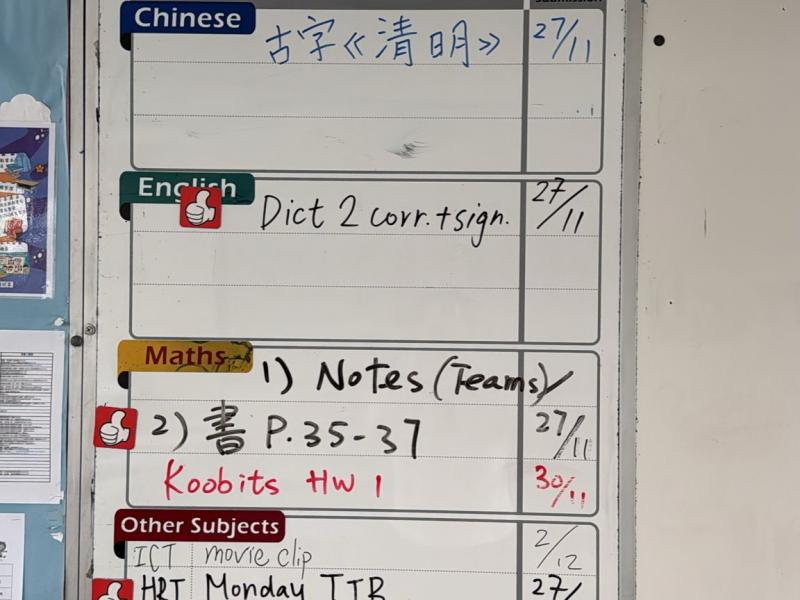 submission
Chinese
古字《清明》 27/11
English
Dict 2 corr.+sign. 27/11
Maths
1) Notes (Teams)
2) 書 P.35-37 27/11
Koobits HW 1 30/11
Other Subjects
ICT movie clip 2/12
HRT Monday TTB 27/